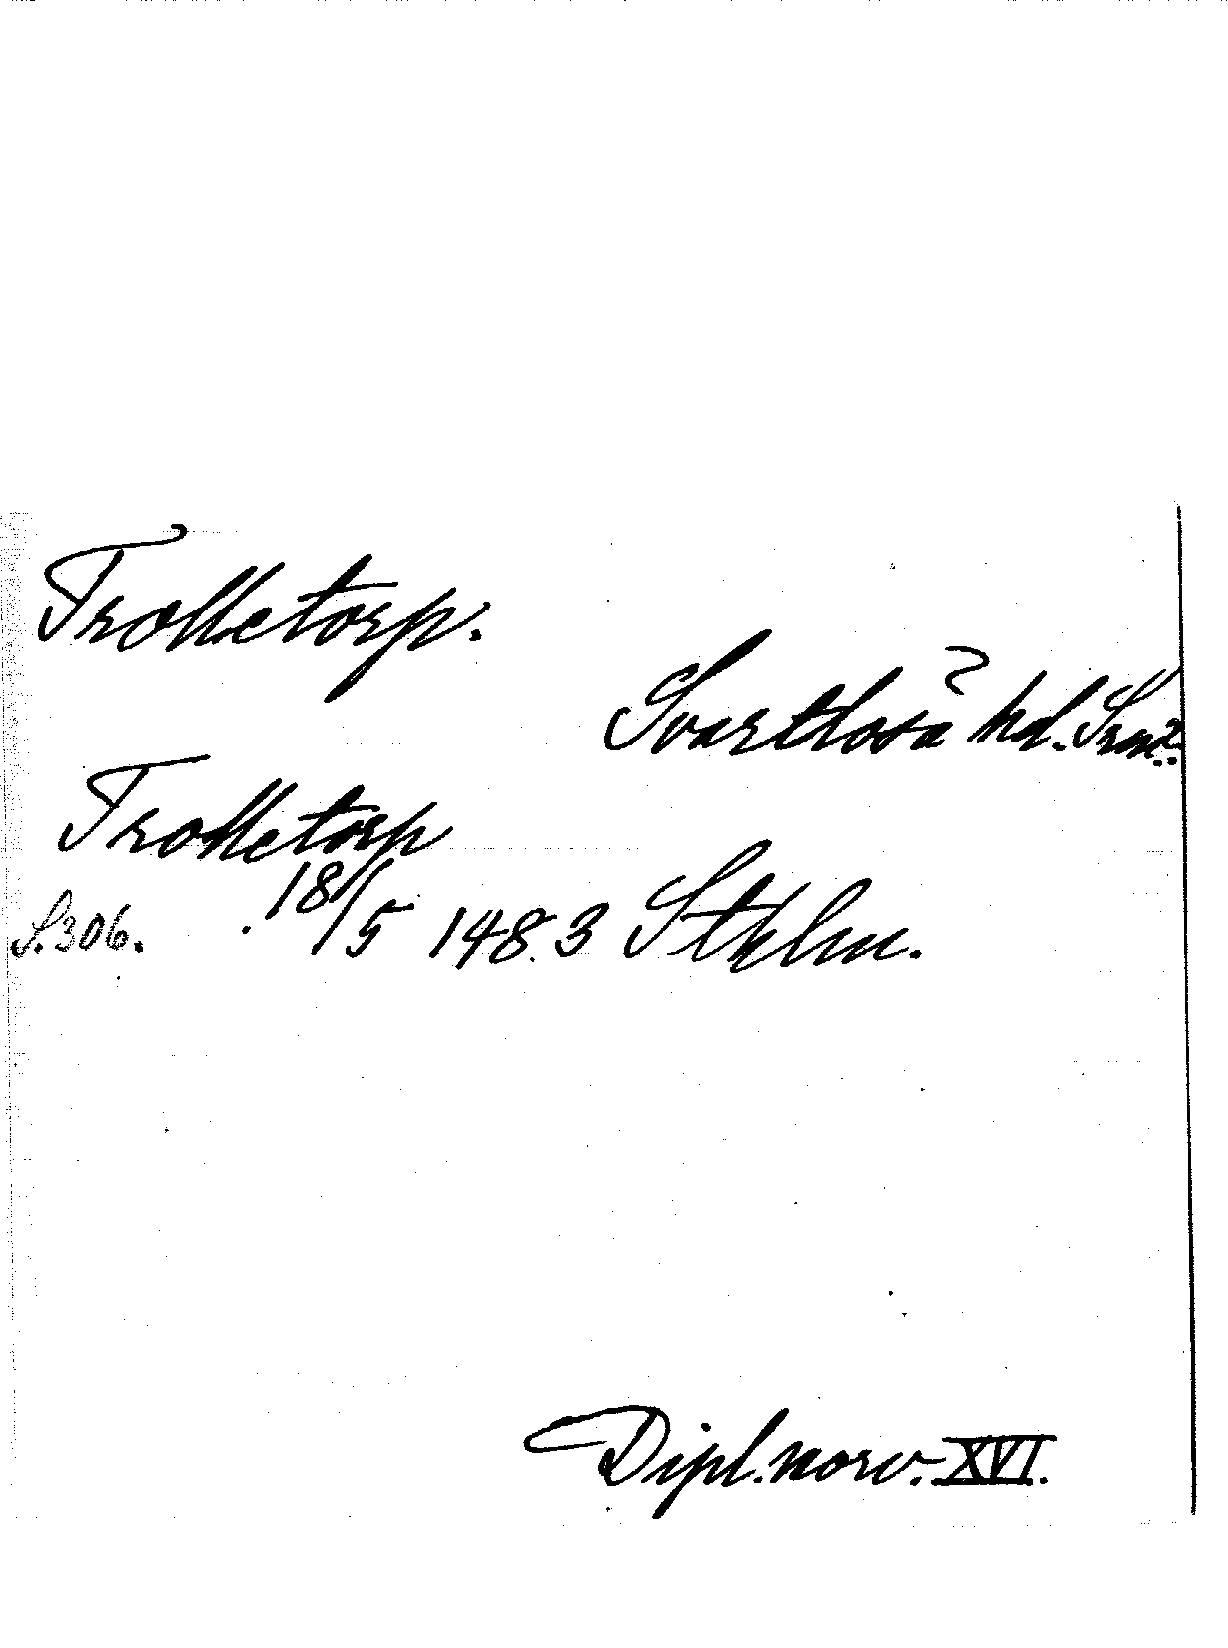 Trolletorp.
Svartlösa hd. Srml.
Trolletorp
S. 306. 18/5 1483 Sthlm.
Dipl. norv. XVI.